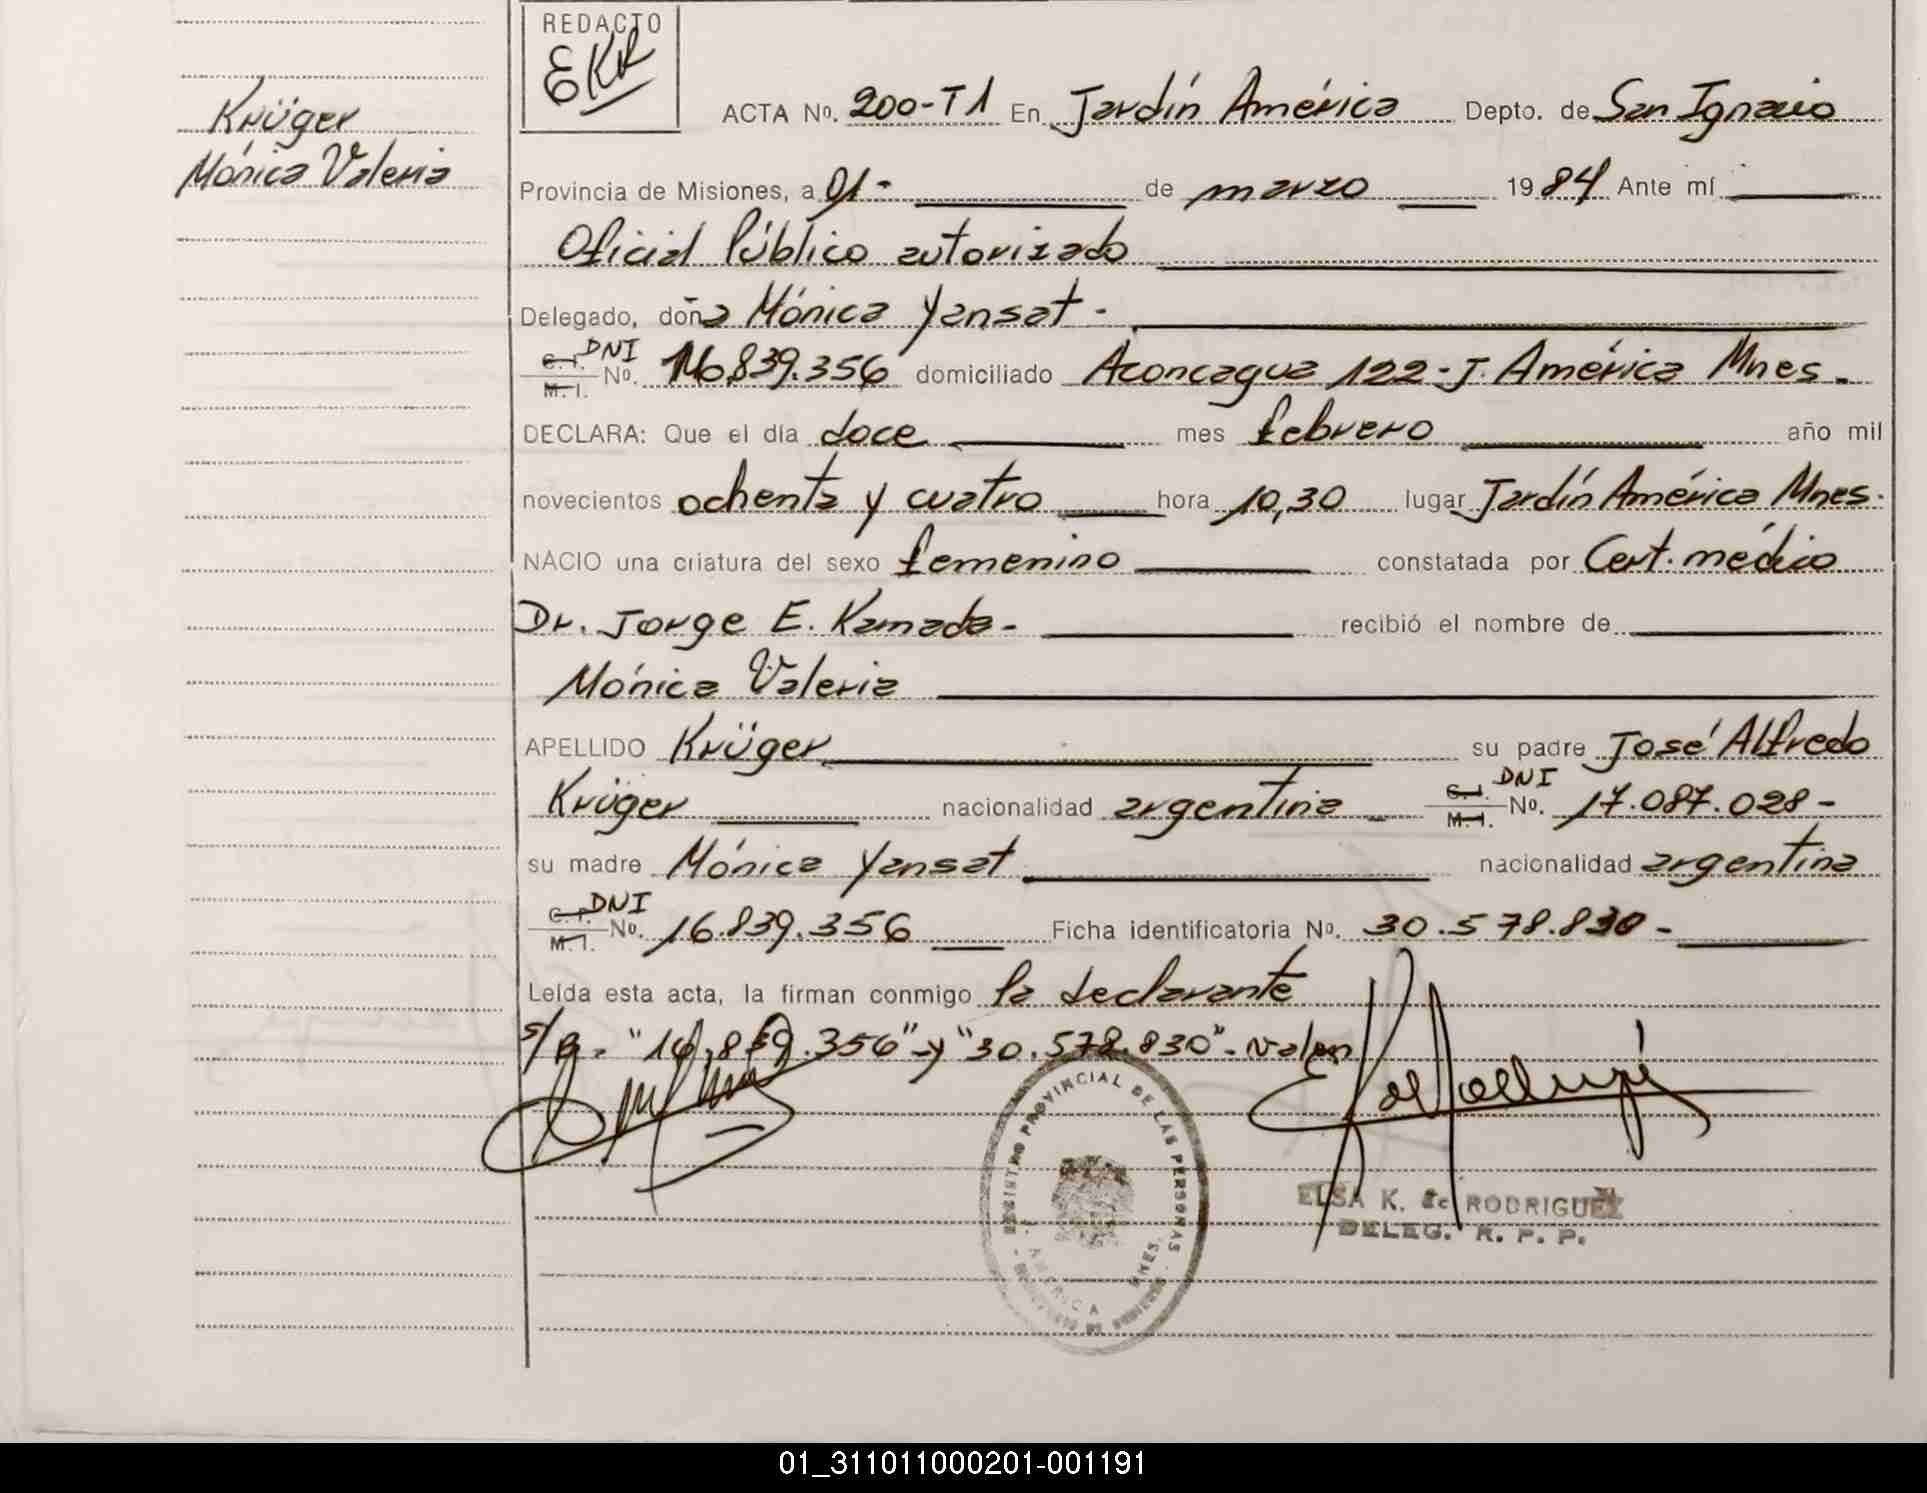 REDACTO
EKR
Krüger
Mónica Valeria
ACTA No. 200-T1 En Jardín América Depto. de San Ignacio
Provincia de Misiones, a 01- de marzo 1984 Ante mí
Oficial Público autorizado
Delegado, doña Mónica Yansat -
C. I. DNI
M. I. No. 16.839.356 domiciliado Aconcagua 122-J. América Mnes.
DECLARA: Que el día doce mes febrero año mil
novecientos ochenta y cuatro hora 10,30 lugar Jardín América Mnes.
NACIO una criatura del sexo femenino constatada por Cert. médico
Dr. Jorge E. Kamada - recibió el nombre de
Mónica Valeria
APELLIDO Krüger su padre José Alfredo
Krüger nacionalidad argentina - C. I. DNI M. I. No. 17.087.028 -
su madre Mónica Yansat nacionalidad argentina
C. I. DNI
M. I. No. 16.839.356 Ficha identificatoria No. 30.578.830 -
Leída esta acta, la firman conmigo la declarante
s/B. "16.839.356" y "30.578.830" - valen
REGISTRO PROVINCIAL DE LAS PERSONAS
AMERICA MNES.
ELSA K. de RODRIGUEZ
DELEG. R. P. P.
01_311011000201-001191